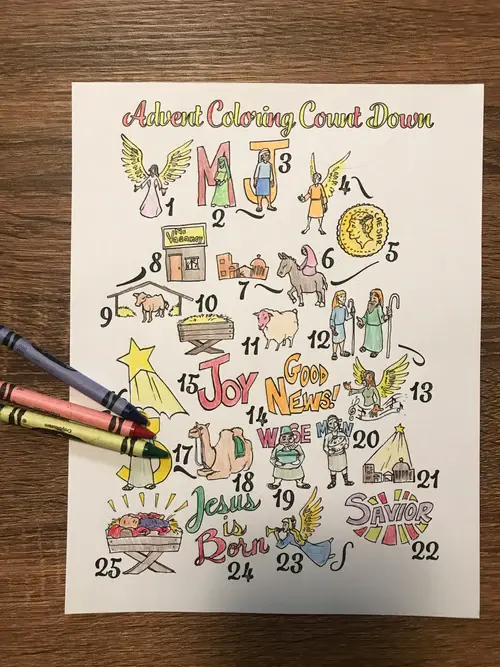 Advent Coloring Count Down
M J 3
1 2 4
No Vacancy
CAESAR
5
8 7 6
9 10
11 12
15 JOY GOOD NEWS!
14 13
17 WISE MEN 20
18 19 21
Jesus is Born
SAVIOR
25 24 23 22